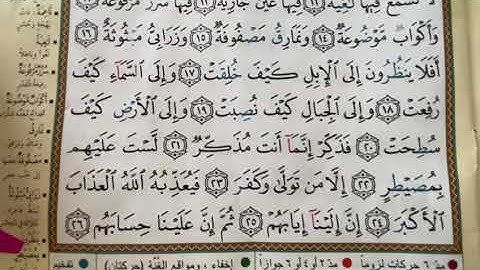 لَّا تَسْمَعُ فِيهَا لَٰغِيَةً ﴿١١﴾ فِيهَا عَيْنٌ جَارِيَةٌ ﴿١٢﴾ فِيهَا سُرُرٌ مَّرْفُوعَةٌ
وَأَكْوَابٌ مَّوْضُوعَةٌ ﴿١٤﴾ وَنَمَارِقُ مَصْفُوفَةٌ ﴿١٥﴾ وَزَرَابِيُّ مَبْثُوثَةٌ ﴿١٦﴾
أَفَلَا يَنظُرُونَ إِلَى ٱلْإِبِلِ كَيْفَ خُلِقَتْ ﴿١٧﴾ وَإِلَى ٱلسَّمَآءِ كَيْفَ
رُفِعَتْ ﴿١٨﴾ وَإِلَى ٱلْجِبَالِ كَيْفَ نُصِبَتْ ﴿١٩﴾ وَإِلَى ٱلْأَرْضِ كَيْفَ
سُطِحَتْ ﴿٢٠﴾ فَذَكِّرْ إِنَّمَآ أَنتَ مُذَكِّرٌ ﴿٢١﴾ لَّسْتَ عَلَيْهِم
بِمُصَيْطِرٍ ﴿٢٢﴾ إِلَّا مَن تَوَلَّىٰ وَكَفَرَ ﴿٢٣﴾ فَيُعَذِّبُهُ ٱللَّهُ ٱلْعَذَابَ
ٱلْأَكْبَرَ ﴿٢٤﴾ إِنَّ إِلَيْنَآ إِيَابَهُمْ ﴿٢٥﴾ ثُمَّ إِنَّ عَلَيْنَا حِسَابَهُم ﴿٢٦﴾
مدّ ٦ حركات لزوماً مدّ ٢ أو ٤ أو ٦ جوازاً إخفاء، ومواقع الغُنَّة (حركتان) تفخيم